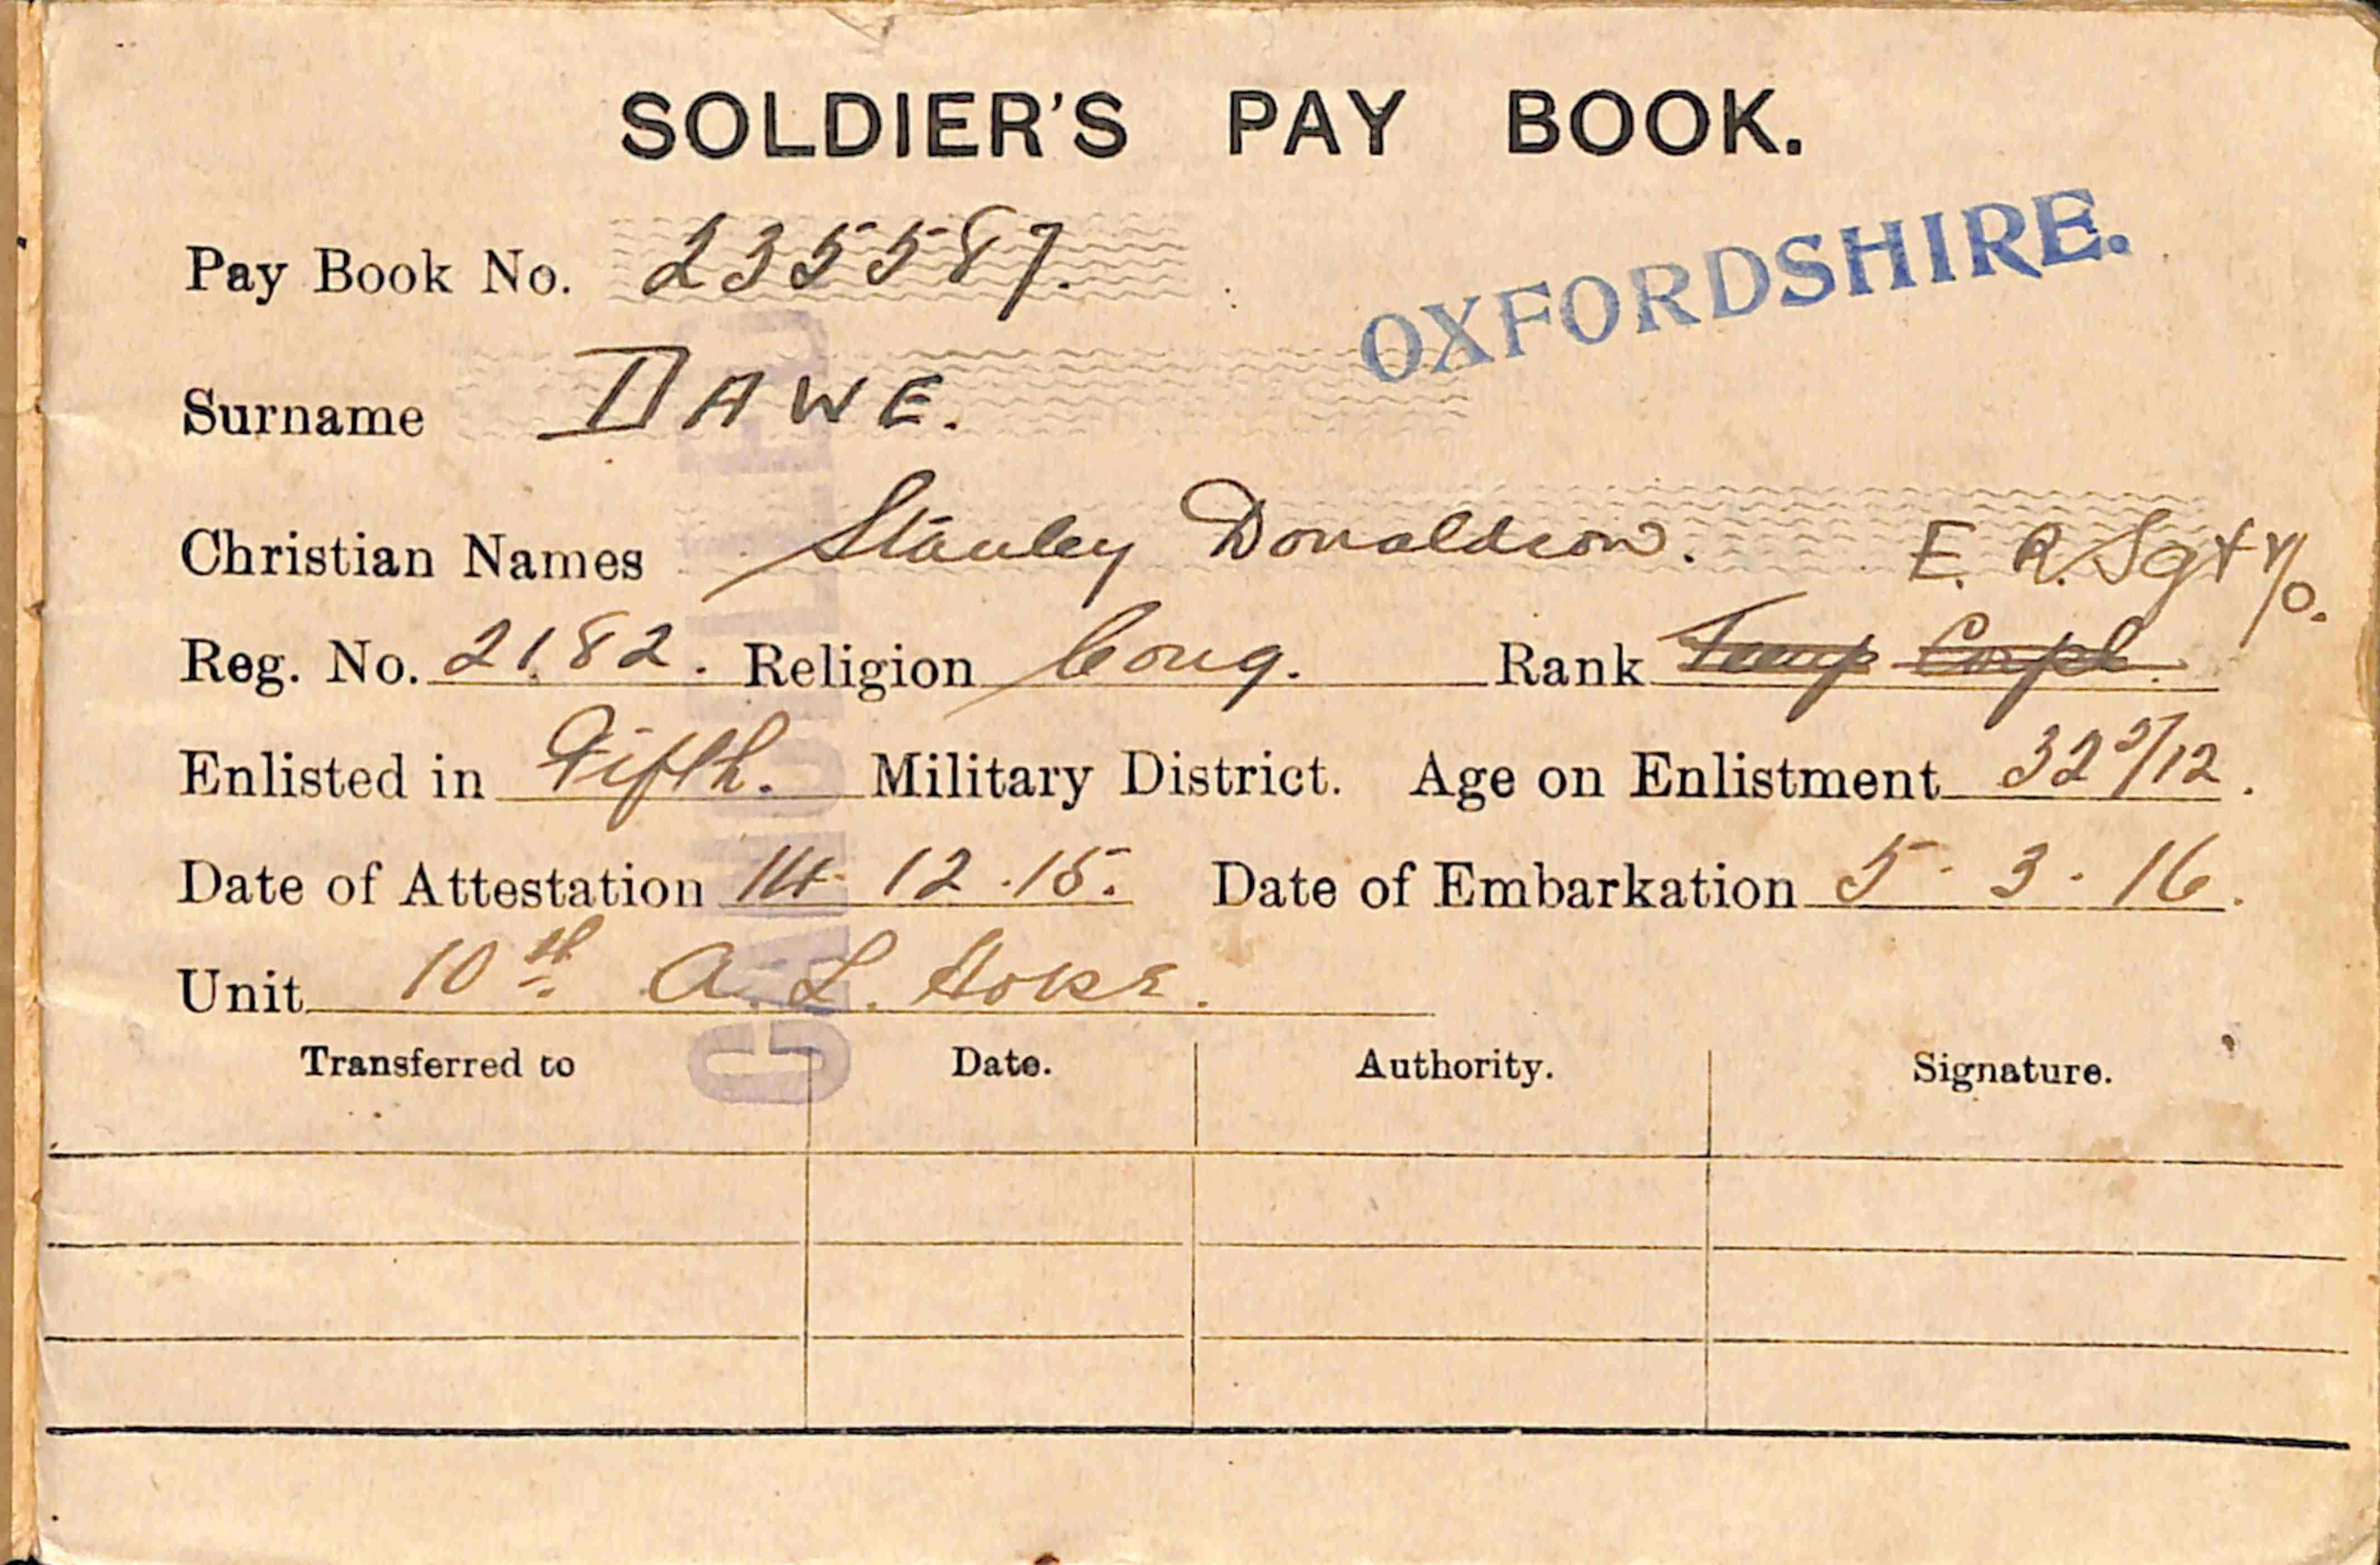 SOLDIER'S PAY BOOK.
Pay Book No. 235587.
OXFORDSHIRE.
Surname DAWE.
Christian Names Stanley Donaldson.
E. R. Sgt
Reg. No. 2182. Religion Cong. Rank Temp Corpl.
Enlisted in Fifth. Military District. Age on Enlistment 32 5/12.
Date of Attestation 14.12.15. Date of Embarkation 5.3.16.
Unit 10th A. L. Horse.
CANCELLED
Transferred to Date. Authority. Signature.